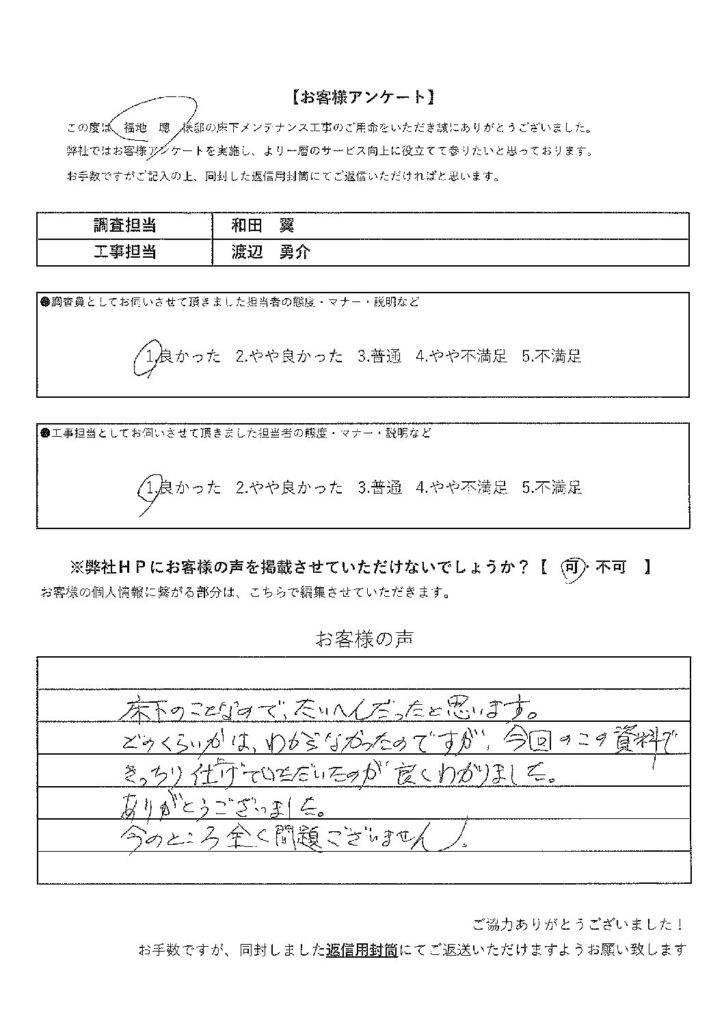 【お客様アンケート】
この度は 福地 聰 様邸の床下メンテナンス工事のご用命をいただき誠にありがとうございました。
弊社ではお客様アンケートを実施し、より一層のサービス向上に役立てて参りたいと思っております。
お手数ですがご記入の上、同封した返信用封筒にてご返信いただければと思います。
調査担当 和田 翼
工事担当 渡辺 勇介
●調査員としてお伺いさせて頂きました担当者の態度・マナー・説明など
1.良かった 2.やや良かった 3.普通 4.やや不満足 5.不満足
●工事担当としてお伺いさせて頂きました担当者の態度・マナー・説明など
1.良かった 2.やや良かった 3.普通 4.やや不満足 5.不満足
※弊社HPにお客様の声を掲載させていただけないでしょうか?【 可・不可 】
お客様の個人情報に繋がる部分は、こちらで編集させていただきます。
お客様の声
床下のことなので、たいへんだったと思います。
どのくらいかは、わからなかったのですが、今回のこの資料で
きっちり仕上げていただいたのが良くわかりました。
ありがとうございました。
今のところ全く問題ございません。
ご協力ありがとうございました!
お手数ですが、同封しました返信用封筒にてご返送いただけますようお願い致します